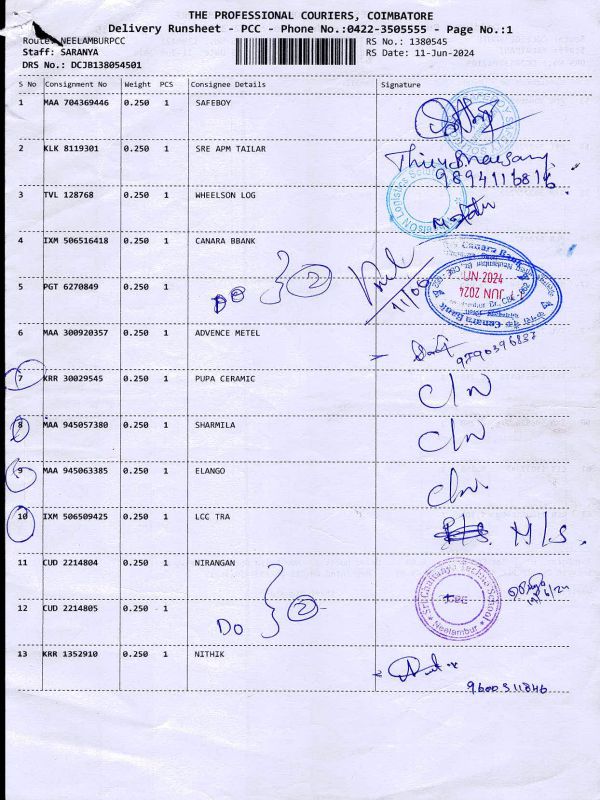 THE PROFESSIONAL COURIERS, COIMBATORE
Delivery Runsheet - PCC - Phone No.:0422-3505555 - Page No.:1
Route: NEELAMBURPCC
RS No.: 1380545
Staff: SARANYA
RS Date: 11-Jun-2024
DRS No.: DCJB138054501
S No Consignment No Weight PCS Consignee Details Signature
1 MAA 704369446 0.250 1 SAFEBOY
2 KLK 8119301 0.250 1 SRE APM TAILAR
9894116816
3 TVL 128768 0.250 1 WHEELSON LOG
4 IXM 506516418 0.250 1 CANARA BBANK
Canara Bank
JUN 2024
DO 2
5 PGT 6270849 0.250 1
11/06
6 MAA 300920357 0.250 1 ADVENCE METEL
9790396837
7 KRR 30029545 0.250 1 PUPA CERAMIC C/N
8 MAA 945057380 0.250 1 SHARMILA C/N
9 MAA 945063385 0.250 1 ELANGO C/N
10 IXM 506509425 0.250 1 LCC TRA M/S.
11 CUD 2214804 0.250 1 NIRANGAN
Sri Chaitanya Techno School
Neelambur
12 CUD 2214805 0.250 1
DO 2
13 KRR 1352910 0.250 1 NITHIK
9600311846